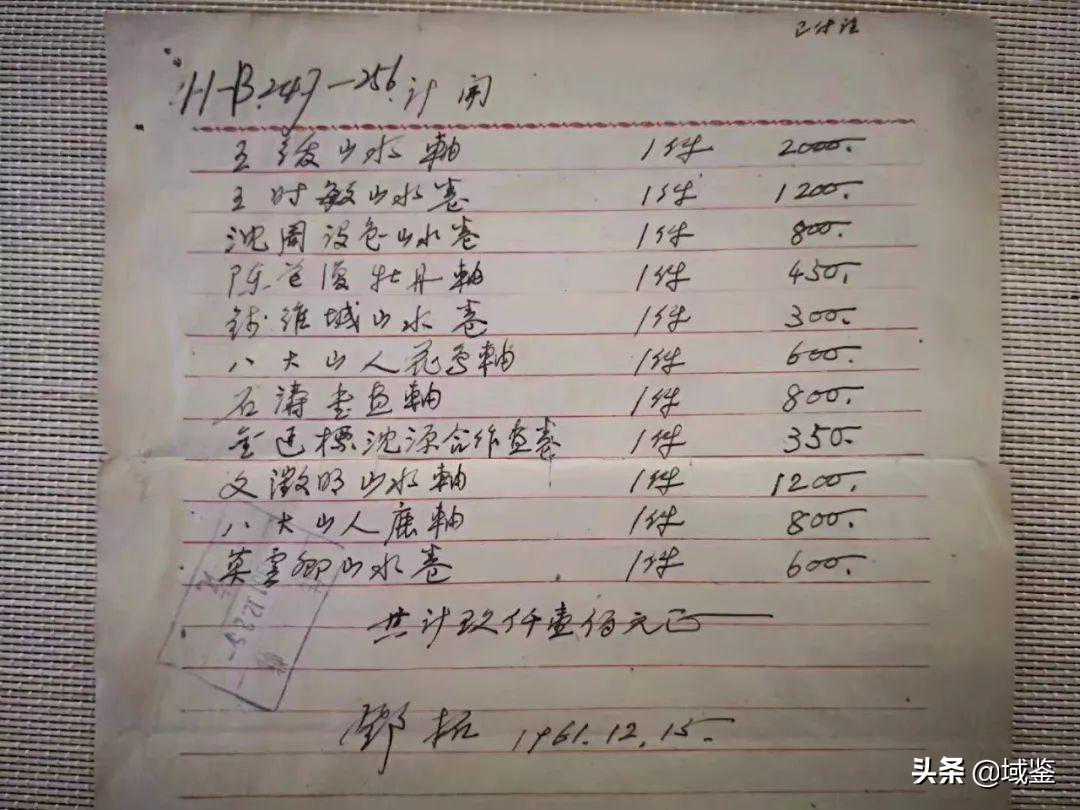 H-B.247-256.计开
王绂山水軸 1件 2000.
王时敏山水卷 1件 1200.
沈周设色山水卷 1件 800.
陈道復牡丹軸 1件 450.
钱维城山水卷 1件 300.
八大山人花鸟軸 1件 600.
石濤画軸 1件 800.
金廷標沈源合作画卷 1件 350.
文徵明山水軸 1件 1200.
八大山人鹿軸 1件 800.
莫雲卿山水卷 1件 600.
共计玖仟壹佰元正
鄧拓 1961.12.15.
头条 @域鉴